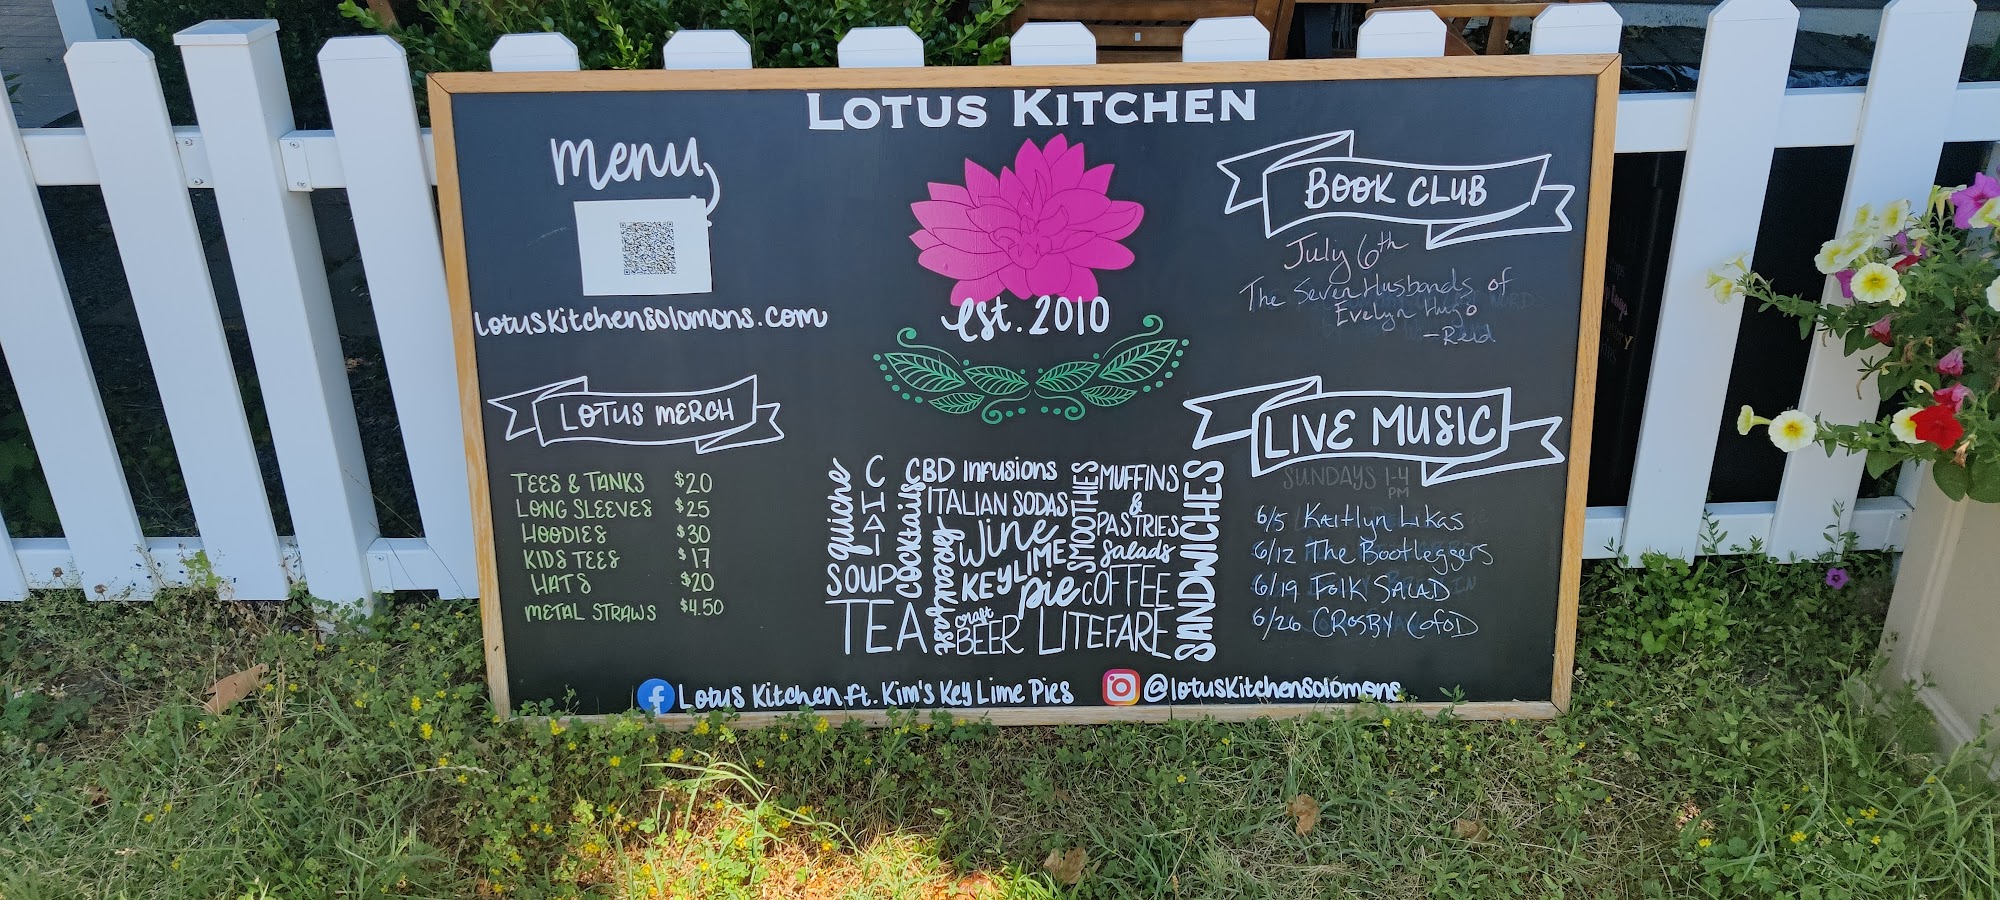 LOTUS KITCHEN
menu
lotuskitchensolomons.com
est. 2010
LOTUS MERCH
TEES & TANKS $20
LONG SLEEVES $25
HOODIES $30
KIDS TEES $17
HATS $20
METAL STRAWS $4.50
quiche
CHAI
SOUP
TEA
cocktails
CBD INFUSIONS
ITALIAN SODAS
breakfast
wine
KEY LIME
pie
craft
BEER
SMOOTHIES
MUFFINS
&
PASTRIES
salads
COFFEE
LITEFARE
SANDWICHES
BOOK CLUB
July 6th
The Seven Husbands of
Evelyn Hugo
-Reid
LIVE MUSIC
SUNDAYS 1-4
PM
6/5 Kaitlyn Likas
6/12 The Bootleggers
6/19 FOLK SALAD
6/26 CROSBY COFOD
Lotus Kitchen ft. Kim's Key Lime Pies
@lotuskitchensolomons